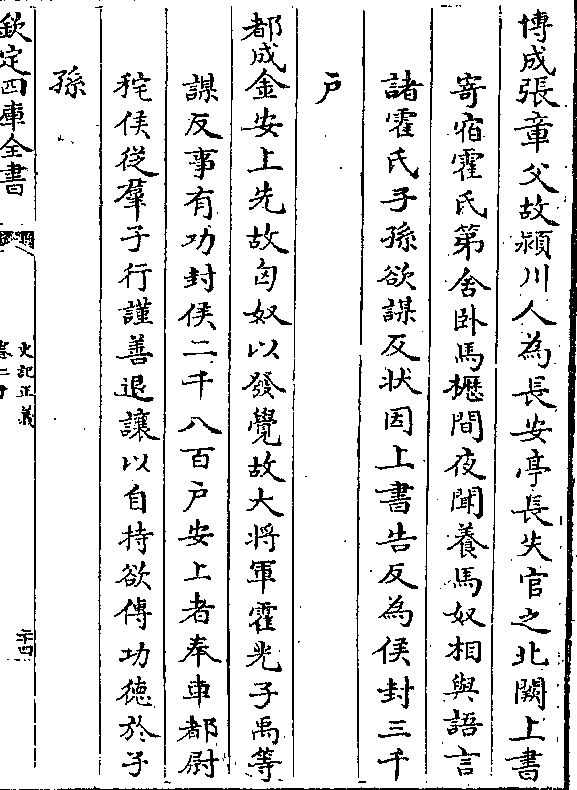 博成張章父故潁川人為長安亭長失官之北闕上書
寄宿霍氏第舍卧馬櫪間夜聞養馬奴相與語言
諸霍氏子孫欲謀反状因上書告反為侯封三千
户
都成金安上先故匈奴以發覺故大将軍霍光子禹等
謀反事有功封侯二千八百户安上者奉車都尉
秺侯從羣子行謹善退讓以自持欲傳功徳於子
孫
欽定四庫全書
史記正義
卷二十
二十四